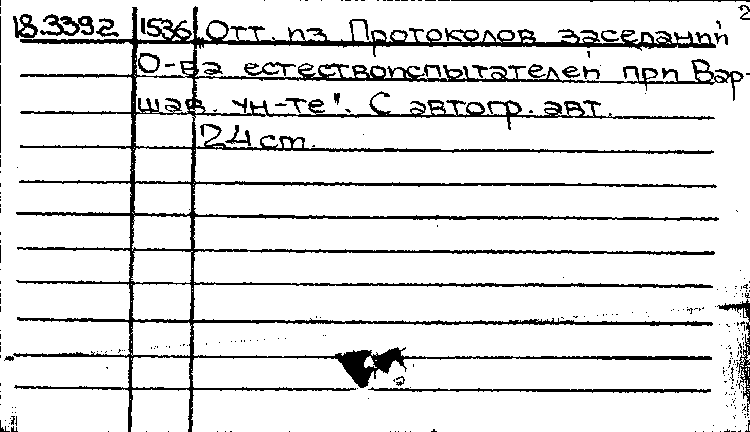 2
18.3392 1536 Отт. из Протоколов заседаний
О-ва естествоиспытателей при Вар-
шав. ун-те". С автогр. авт.
24 ст.